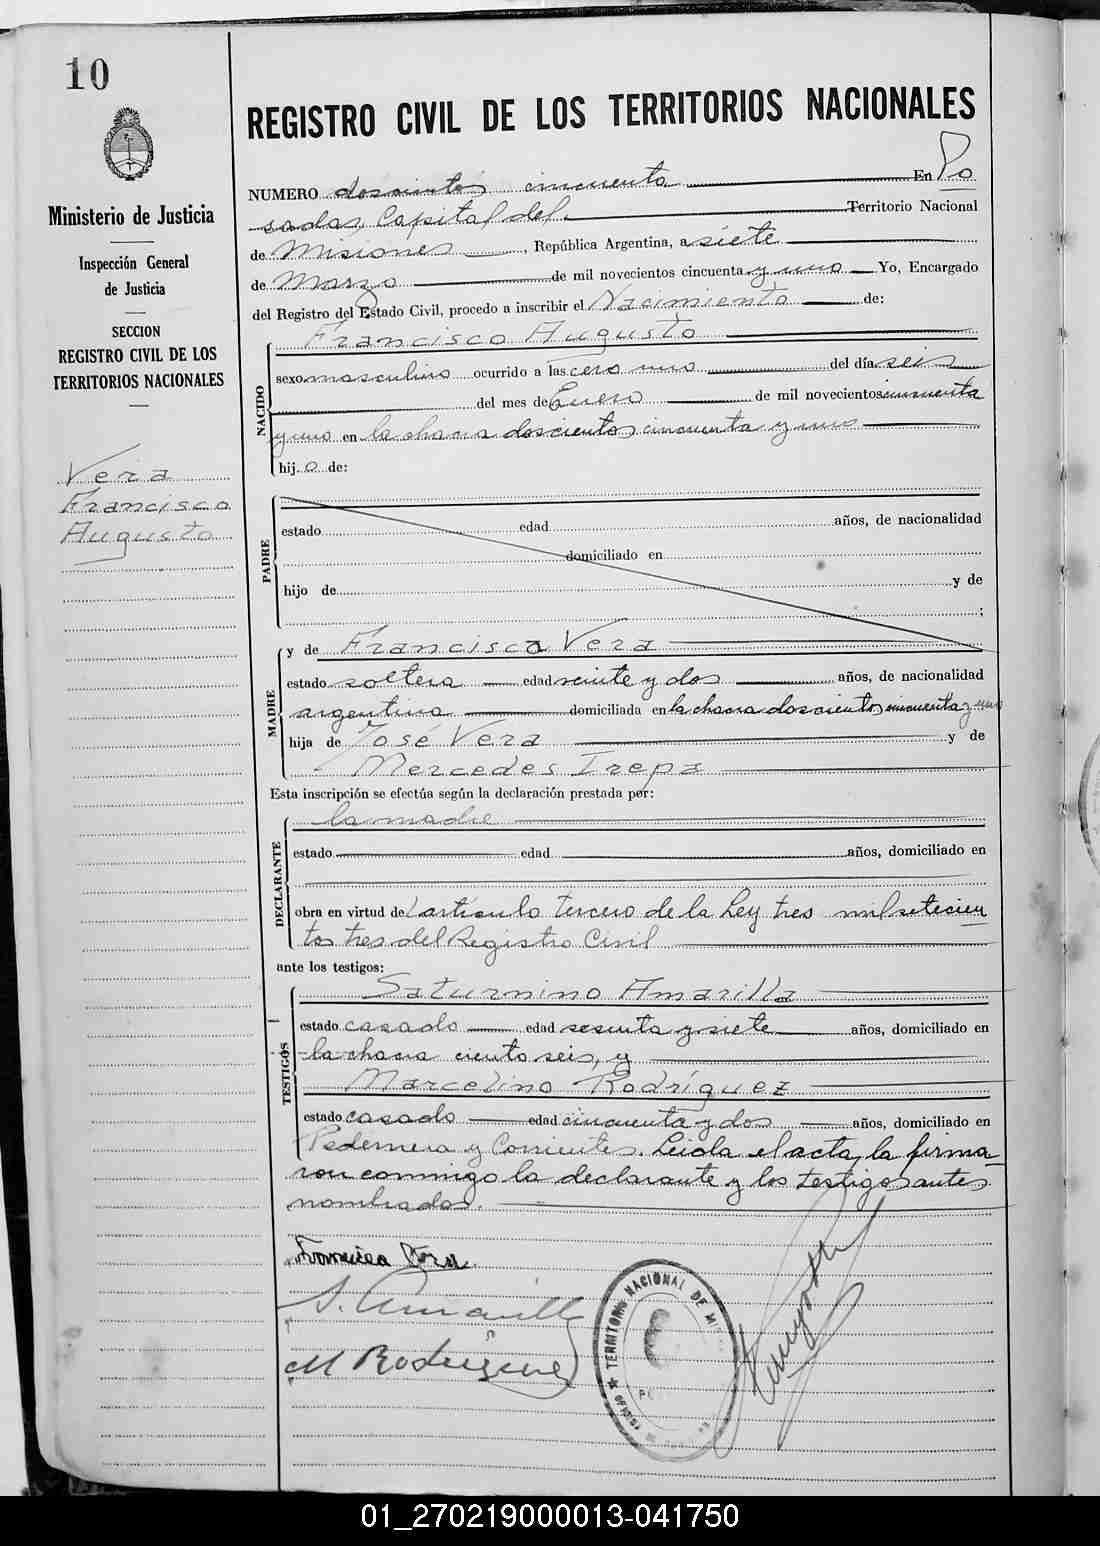 10
REGISTRO CIVIL DE LOS TERRITORIOS NACIONALES
Ministerio de Justicia
Inspección General
de Justicia
SECCION
REGISTRO CIVIL DE LOS
TERRITORIOS NACIONALES
Vera
Francisco
Augusto
NUMERO doscientos cincuenta En Po
sadas, Capital del Territorio Nacional
de Misiones, República Argentina, a siete
de Marzo de mil novecientos cincuenta y uno Yo, Encargado
del Registro del Estado Civil, procedo a inscribir el Nacimiento de:
NACIDO
Francisco Augusto
sexo masculino ocurrido a las cero una del día seis
del mes de Enero de mil novecientos cincuenta
y uno en la chacra doscientos cincuenta y uno
hij o de:
PADRE
estado edad años, de nacionalidad
domiciliado en
hijo de y de
;
MADRE
y de Francisca Vera
estado soltera edad veinte y dos años, de nacionalidad
argentina domiciliada en la chacra doscientos cincuenta y uno
hija de José Vera y de
Mercedes Irepa
Esta inscripción se efectúa según la declaración prestada por:
DECLARANTE
la madre
estado edad años, domiciliado en
obra en virtud del artículo tercero de la Ley tres mil setecien
tos tres del Registro Civil
ante los testigos:
TESTIGOS
Saturnino Amarilla
estado casado edad sesenta y siete años, domiciliado en
la chacra ciento seis, y
Marcelino Rodríguez
estado casado edad cincuenta y dos años, domiciliado en
Pedernera y Corrientes. Leída el acta, la firma-
ron conmigo la declarante y los testigos antes
nombrados.
Francisca Vera
S. Amarilla
M Rodriguez
TERRITORIO NACIONAL DE
01_270219000013-041750